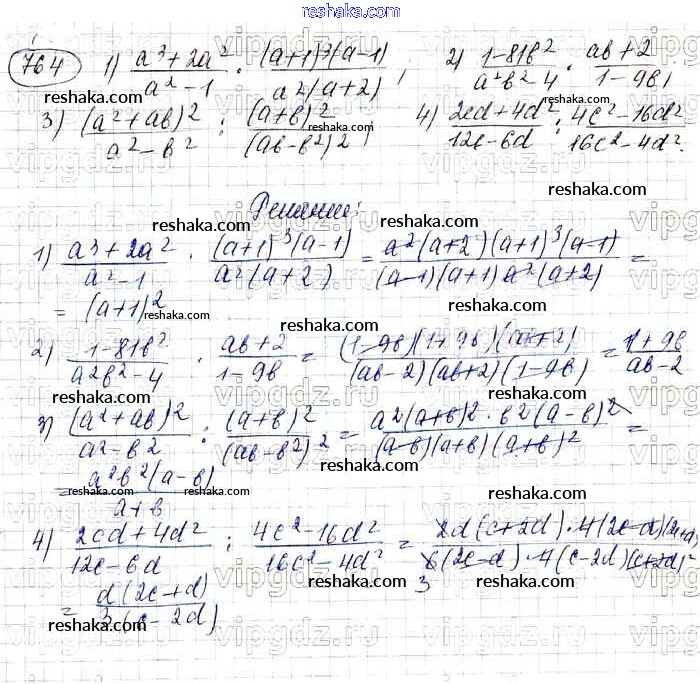 www.reshaka.com
764 1) (a³+2a²)/(a²-1) · ((a+1)³(a-1))/(a²(a+2)); 2) (1-81b²)/(a²b²-4) · (ab+2)/(1-9b);
reshaka.com reshaka.com reshaka.com
3) (a²+ab)²/(a²-b²) : (a+b)²/(ab-b²)²; 4) (2cd+4d²)/(12c-6d) : (4c²-16d²)/(16c²-4d²).
reshaka.com reshaka.com
Решение:
reshaka.com
1) (a³+2a²)/(a²-1) · ((a+1)³(a-1))/(a²(a+2)) = (a²(a+2)(a+1)³(a-1))/((a-1)(a+1)a²(a+2)) =
= (a+1)²
reshaka.com reshaka.com
2) (1-81b²)/(a²b²-4) · (ab+2)/(1-9b) = ((1-9b)(1+9b)(ab+2))/((ab-2)(ab+2)(1-9b)) = (1+9b)/(ab-2)
reshaka.com reshaka.com
3) (a²+ab)²/(a²-b²) : (a+b)²/(ab-b²)² = (a²(a+b)²·b²(a-b)²)/((a-b)(a+b)(a+b)²) =
reshaka.com
= (a²b²(a-b))/(a+b)
reshaka.com reshaka.com
4) (2cd+4d²)/(12c-6d) : (4c²-16d²)/(16c²-4d²) = (2d(c+2d)·4(2c-d)(2c+d))/(6(2c-d)·4(c-2d)(c+2d)) =
3
reshaka.com
= (d(2c+d))/(3(c-2d))
reshaka.com reshaka.com
vipgdz.ru